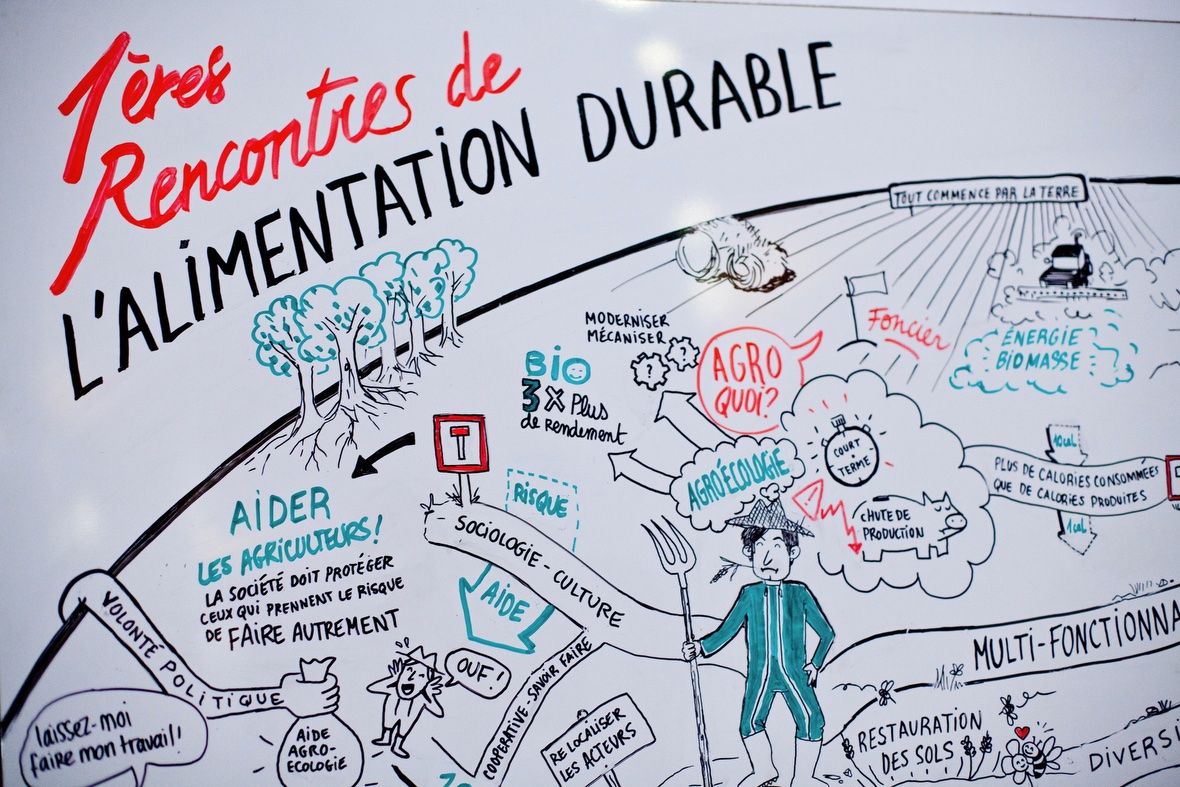 1ères
Rencontres de
L'ALIMENTATION DURABLE
TOUT COMMENCE PAR LA TERRE
MODERNISER
MÉCANISER
? ?
BIO
3 X Plus
de rendement
AGRO
QUOI?
Foncier
ÉNERGIE
BIOMASSE
AGROÉCOLOGIE
COURT
TERME
CHUTE DE
PRODUCTION
10 cal
PLUS DE CALORIES CONSOMMÉES
QUE DE CALORIES PRODUITES
1 cal
AIDER
LES AGRICULTEURS!
LA SOCIÉTÉ DOIT PROTÉGER
CEUX QUI PRENNENT LE RISQUE
DE FAIRE AUTREMENT
RISQUE
SOCIOLOGIE - CULTURE
AIDE
VOLONTÉ POLITIQUE
OUF!
COOPÉRATIVE - SAVOIR FAIRE
laissez-moi
faire mon travail!
AIDE
AGRO-
ECOLOGIE
RE LOCALISER
LES ACTEURS
MULTI-FONCTIONNA
RESTAURATION
DES SOLS
DIVERSI